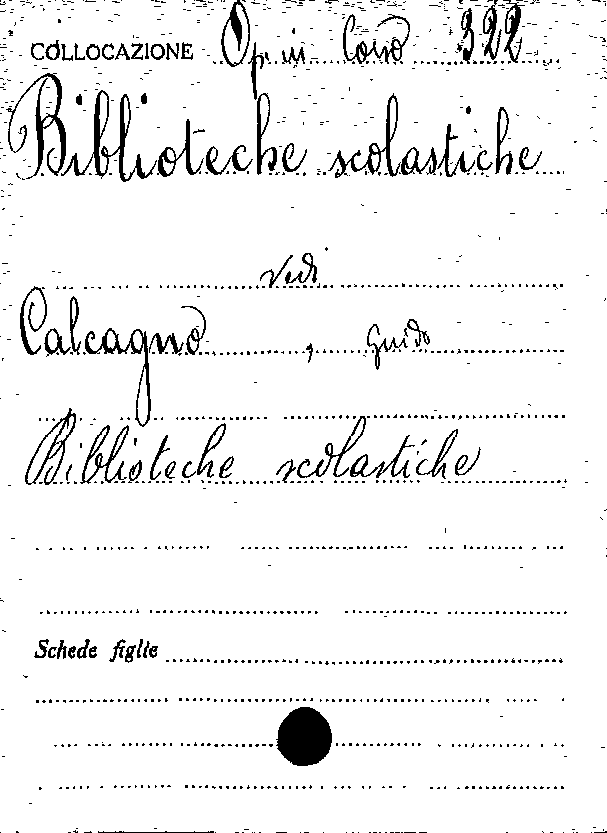 COLLOCAZIONE Op. in Corso 322
Biblioteche scolastiche
Vedi
Calcagno, Guido
Biblioteche scolastiche
Schede figlie